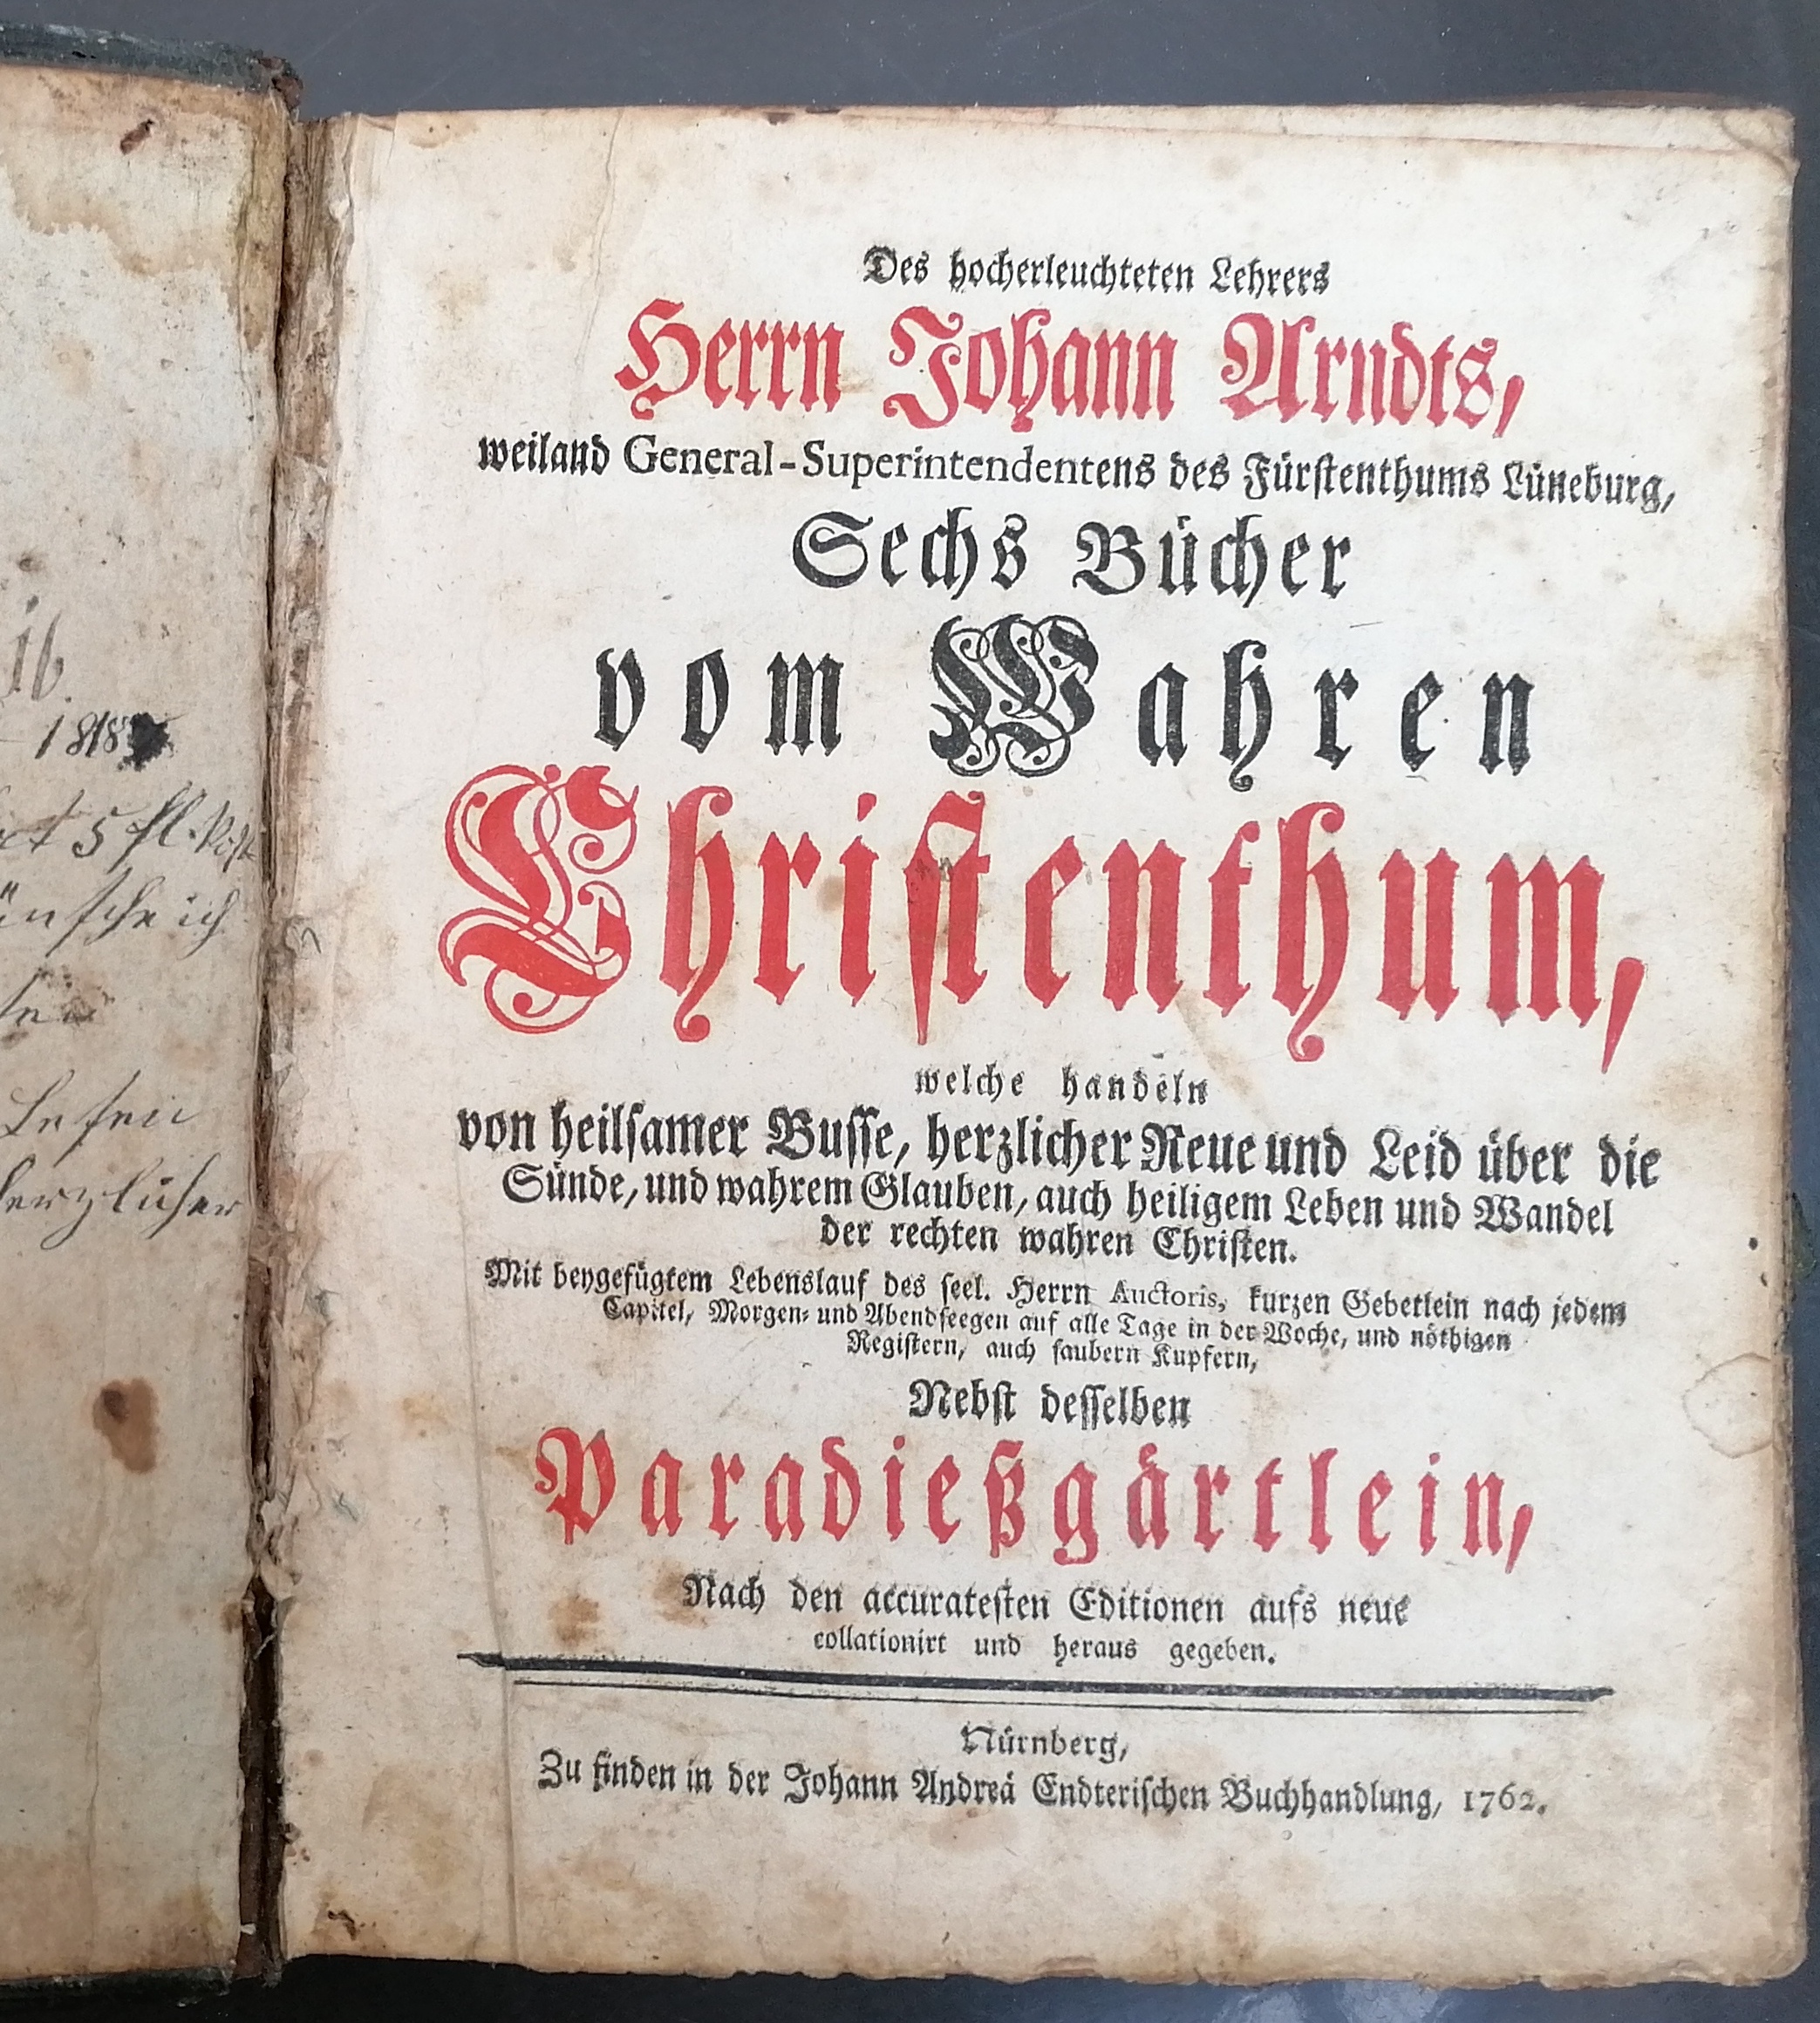 1818
5 fl.
ich
Lesen
herzlicher
Des hocherleuchteten Lehrers
Herrn Johann Arndts,
weiland General-Superintendentens des Fürſtenthums Lüneburg,
Sechs Bücher
vom Wahren
Chriſtenthum,
welche handeln
von heilſamer Buſſe, herzlicher Reue und Leid über die
Sünde, und wahrem Glauben, auch heiligem Leben und Wandel
der rechten wahren Chriſten.
Mit beygefügtem Lebenslauf des ſeel. Herrn Auctoris, kurzen Gebetlein nach jedem
Capitel, Morgen- und Abendſeegen auf alle Tage in der Woche, und nöthigen
Regiſtern, auch ſaubern Kupfern,
Nebſt deſſelben
Paradießgärtlein,
Nach den accurateſten Editionen aufs neue
collationirt und heraus gegeben.
Nürnberg,
Zu finden in der Johann Andreä Endteriſchen Buchhandlung, 1762.